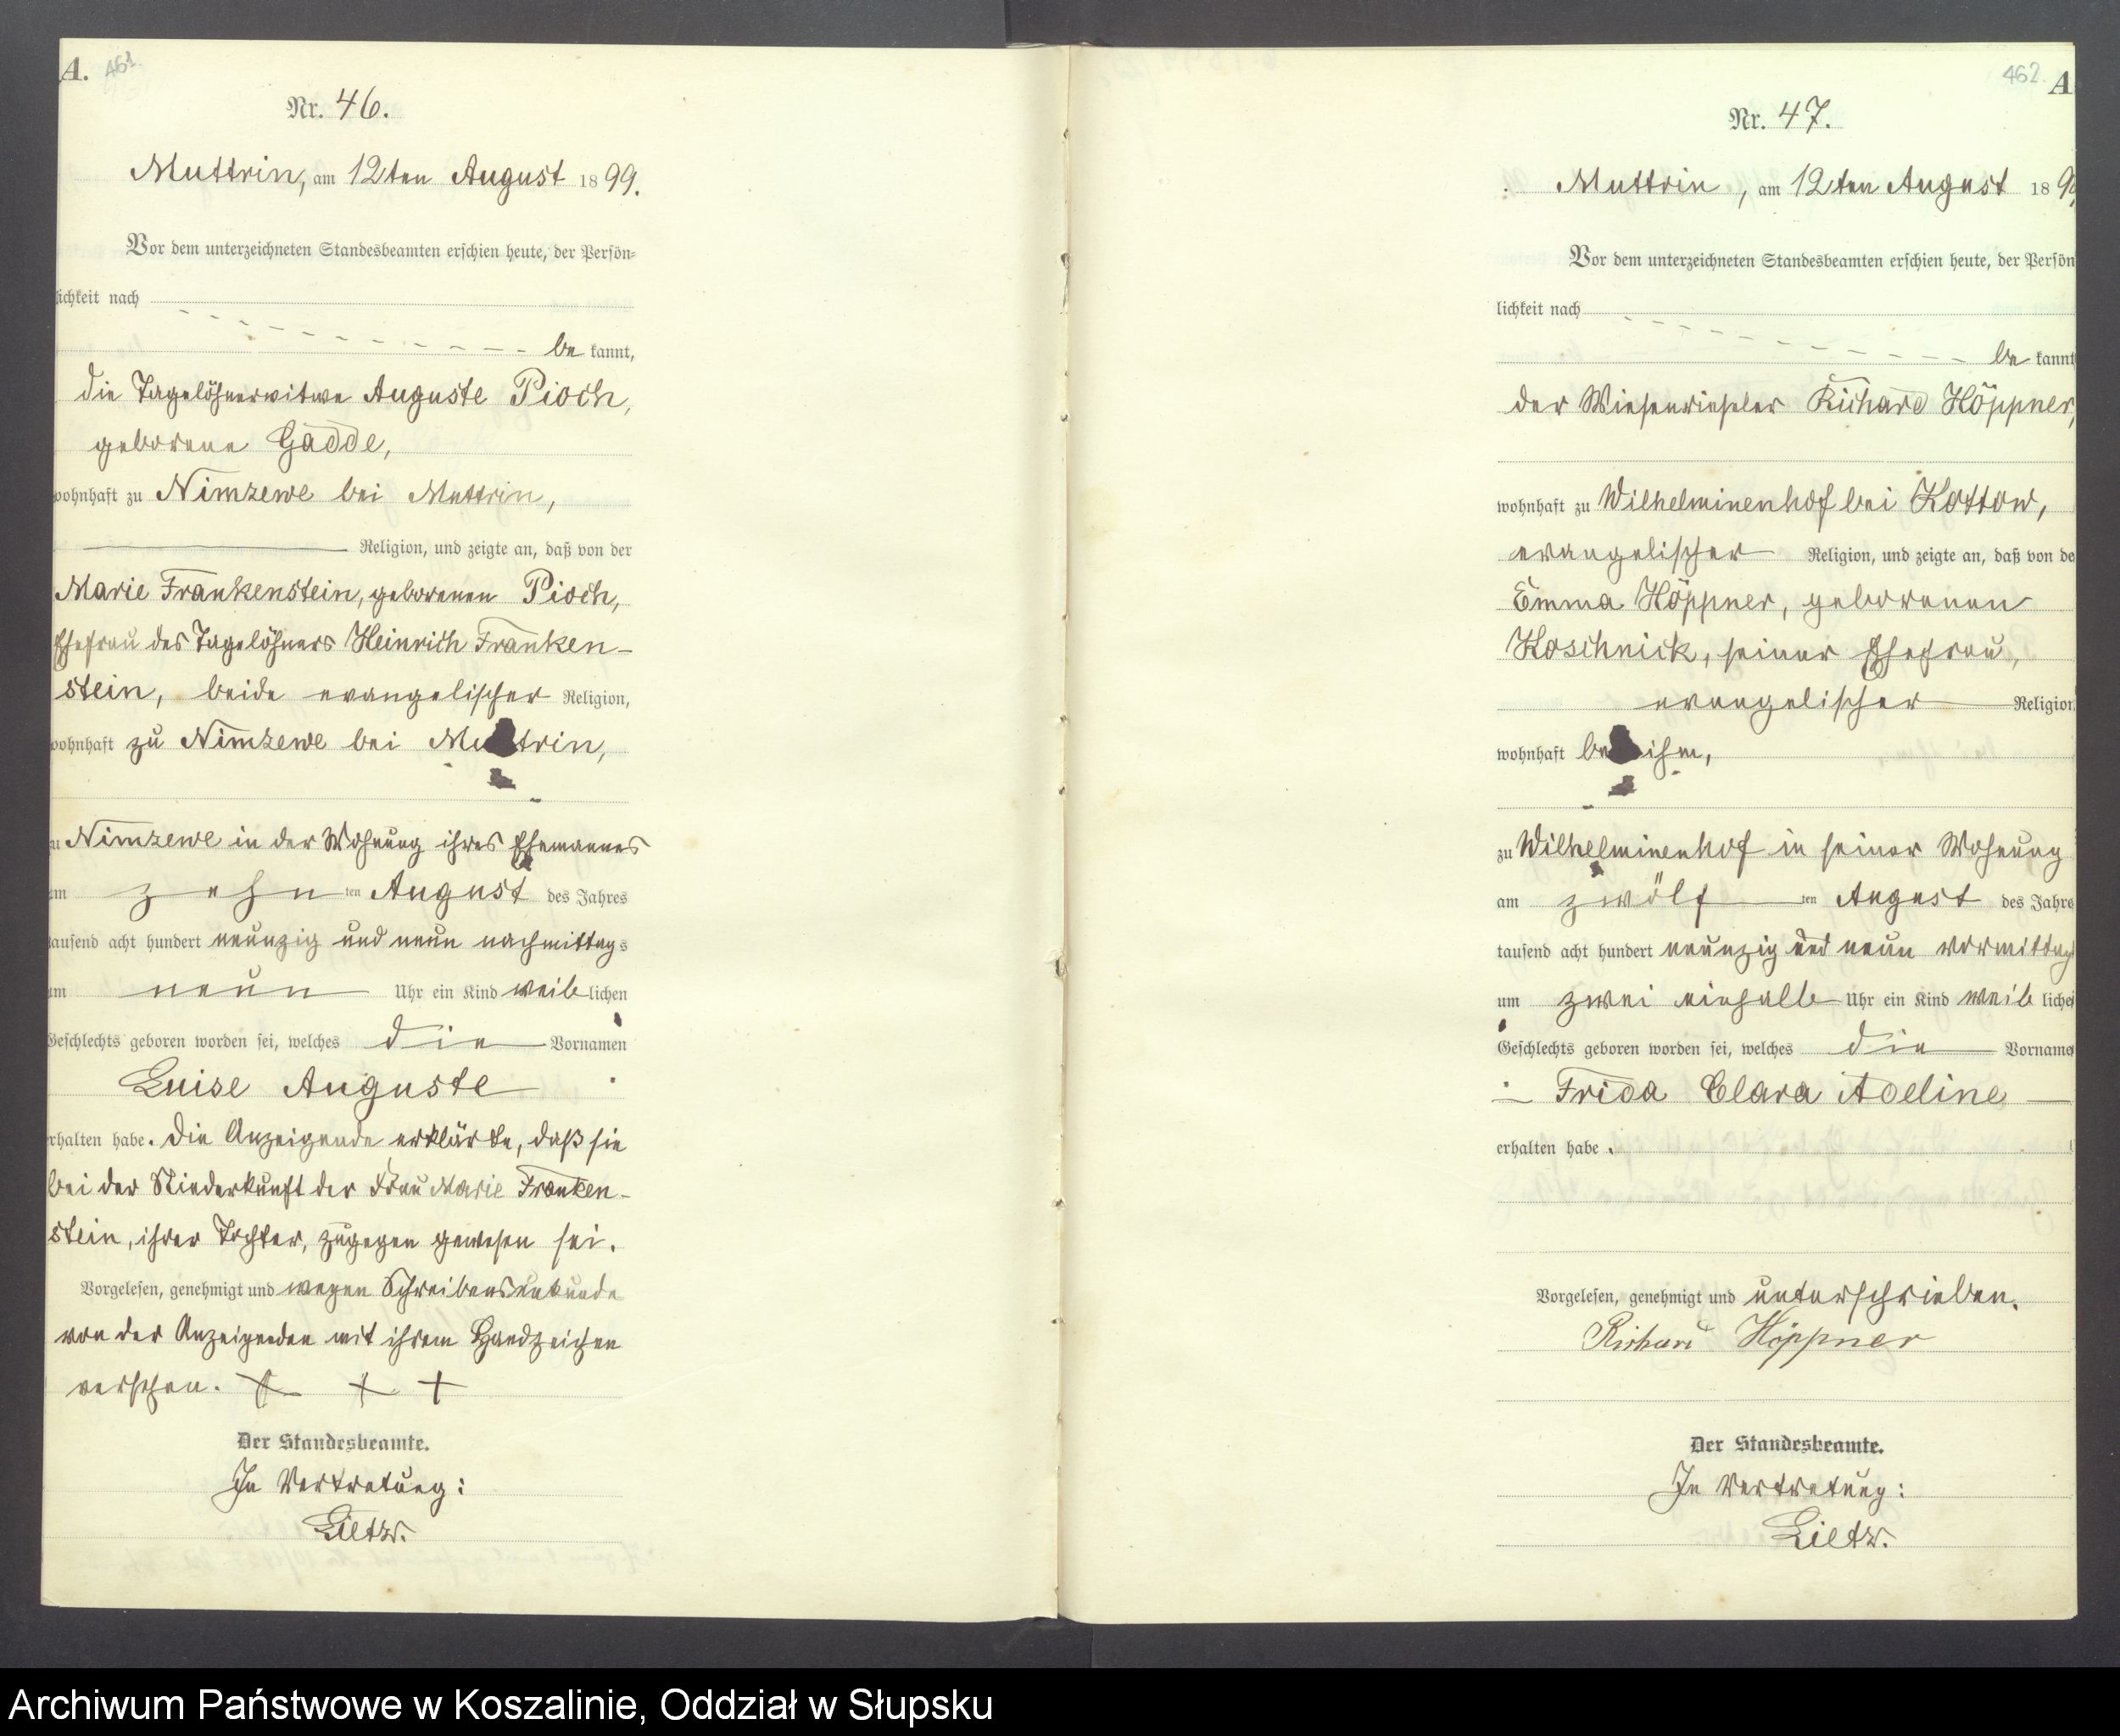 A. 461.
Nr. 46.
Muttrin, am 12ten August 1899.
Vor dem unterzeichneten Standesbeamten erschien heute, der Persön-
lichkeit nach
be kannt,
die Tagelöhnerwitwe Auguste Pioch,
geborene Gadde,
wohnhaft zu Nimzewe bei Muttrin,
Religion, und zeigte an, daß von der
Marie Frankenstein, geborenen Pioch,
Ehefrau des Tagelöhners Heinrich Franken-
stein, beide evangelischer Religion,
wohnhaft zu Nimzewe bei Muttrin,
zu Nimzewe in der Wohnung ihres Ehemannes
am zehn ten August des Jahres
tausend acht hundert neunzig und neun nachmittags
um neun Uhr ein Kind weib lichen
Geschlechts geboren worden sei, welches die Vornamen
Luise Auguste
erhalten habe. Die Anzeigende erklärte, daß sie
bei der Niederkunft der Frau Marie Franken-
stein, ihrer Tochter, zugegen gewesen sei.
Vorgelesen, genehmigt und wegen Schreibensunkunde
von der Anzeigenden mit ihrem Handzeichen
versehen. + + +
Der Standesbeamte.
In Vertretung:
Lietz.
462. A
Nr. 47.
Muttrin, am 12ten August 189
Vor dem unterzeichneten Standesbeamten erschien heute, der Persön
lichkeit nach
be kannt
der Wiesenrieseler Richard Höppner,
wohnhaft zu Wilhelminenhof bei Kottow,
evangelischer Religion, und zeigte an, daß von de
Emma Höppner, geborenen
Koschnick, seiner Ehefrau,
evangelischer Religion
wohnhaft bei ihm,
zu Wilhelminenhof in seiner Wohnung
am zwölf ten August des Jahre
tausend acht hundert neunzig und neun vormittag
um zwei einhalb Uhr ein Kind weib liche
Geschlechts geboren worden sei, welches die Vorname
Frida Clara Adeline
erhalten habe.
Vorgelesen, genehmigt und unterschrieben.
Richard Höppner
Der Standesbeamte.
In Vertretung:
Lietz.
Archiwum Państwowe w Koszalinie, Oddział w Słupsku